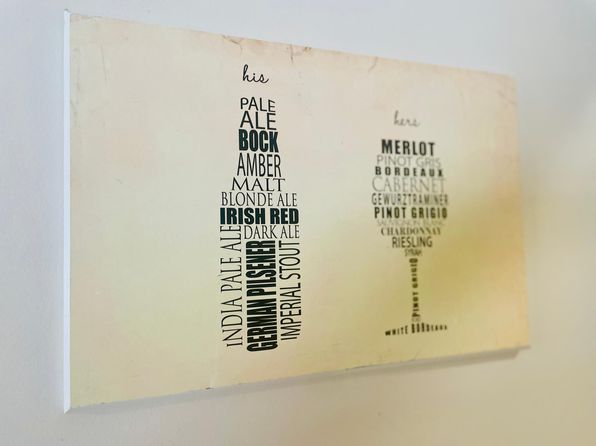 his
PALE
ALE
BOCK
AMBER
MALT
BLONDE ALE
IRISH RED
DARK ALE
INDIA PALE ALE
GERMAN PILSENER
IMPERIAL STOUT
hers
MERLOT
PINOT GRIS
BORDEAUX
CABERNET
GEWURZTRAMINER
PINOT GRIGIO
SAUVIGNON BLANC
CHARDONNAY
RIESLING
SYRAH
PINOT GRIGIO
WHITE BORDEAUX